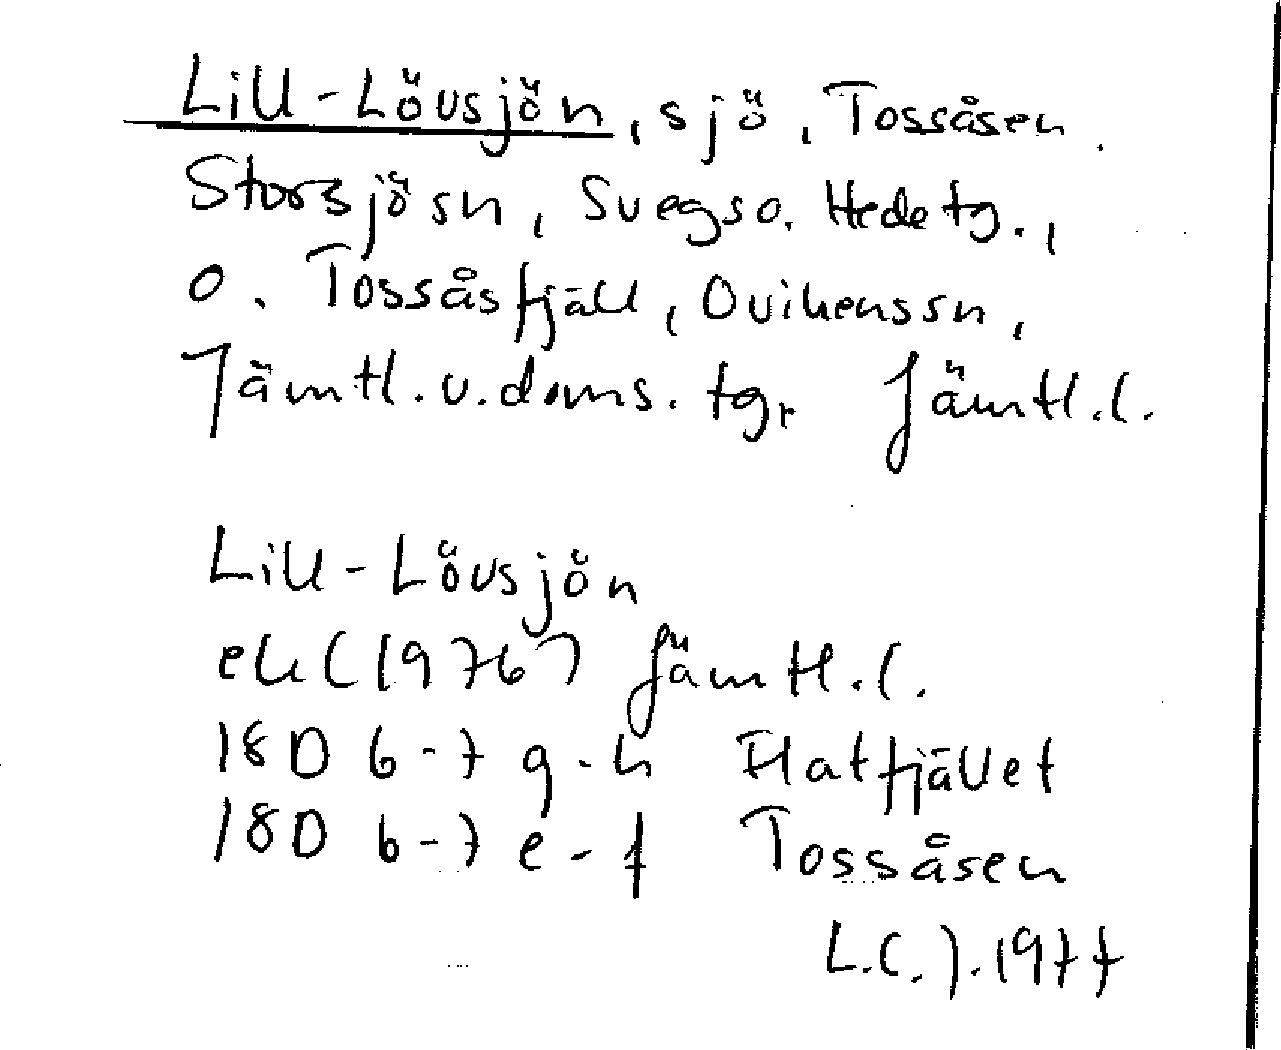 Lill-Lövsjön, sjö, Tossåsen.
Storsjösn, Svegs o. Hede tg.,
o. Tossåsfjäll, Ovikenssn,
Jämtl. v. doms. tg, Jämtl. l.
Lill-Lövsjön
ek (1976) Jämtl. l.
18D 6-7 g-h Flatfjället
18D 6-7 e-f Tossåsen
L.C.J. 1977